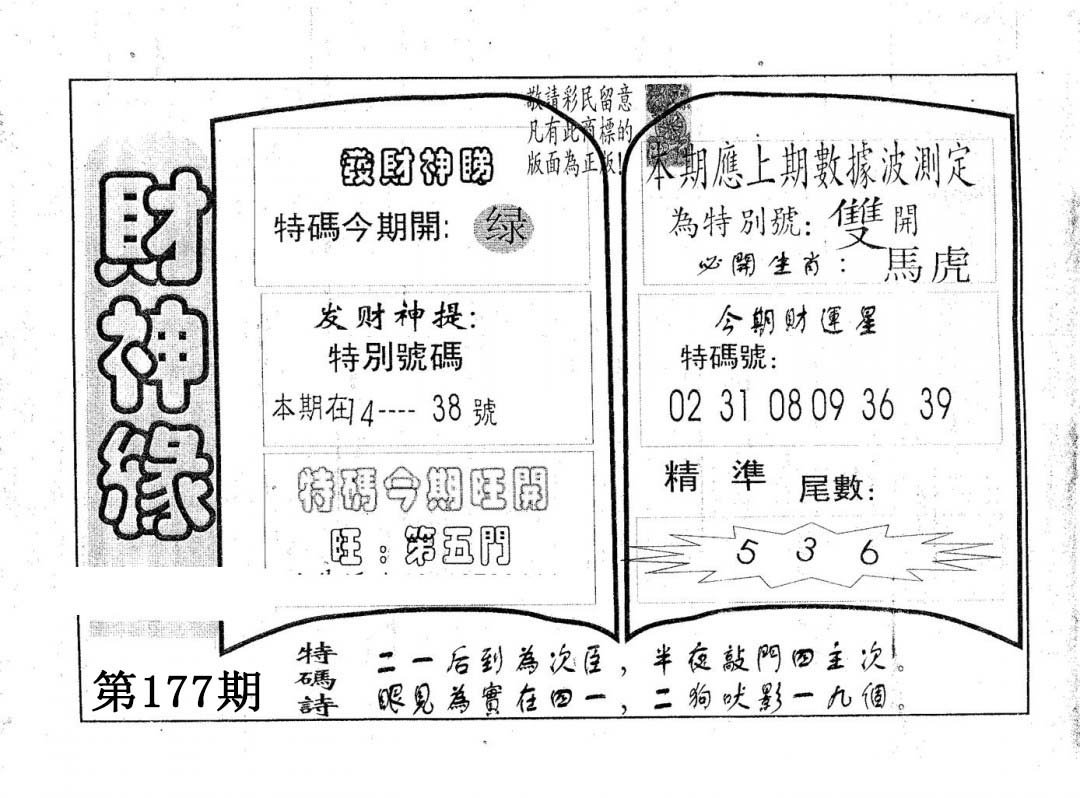 財神緣
敬請彩民留意
凡有此商標的
版面為正版!
發財神睇
特碼今期開: 绿
发财神提:
特別號碼
本期在14---- 38 號
特碼今期旺開
旺:第五門
本期應上期數據波測定
為特別號: 雙 開
必開生肖: 馬虎
今期財運星
特碼號:
02 31 08 09 36 39
精 準 尾數:
5 3 6
特碼詩
二一后到為次臣,半夜敲門四主次。
眼見為實在四一,二狗吠影一九個。
第177期